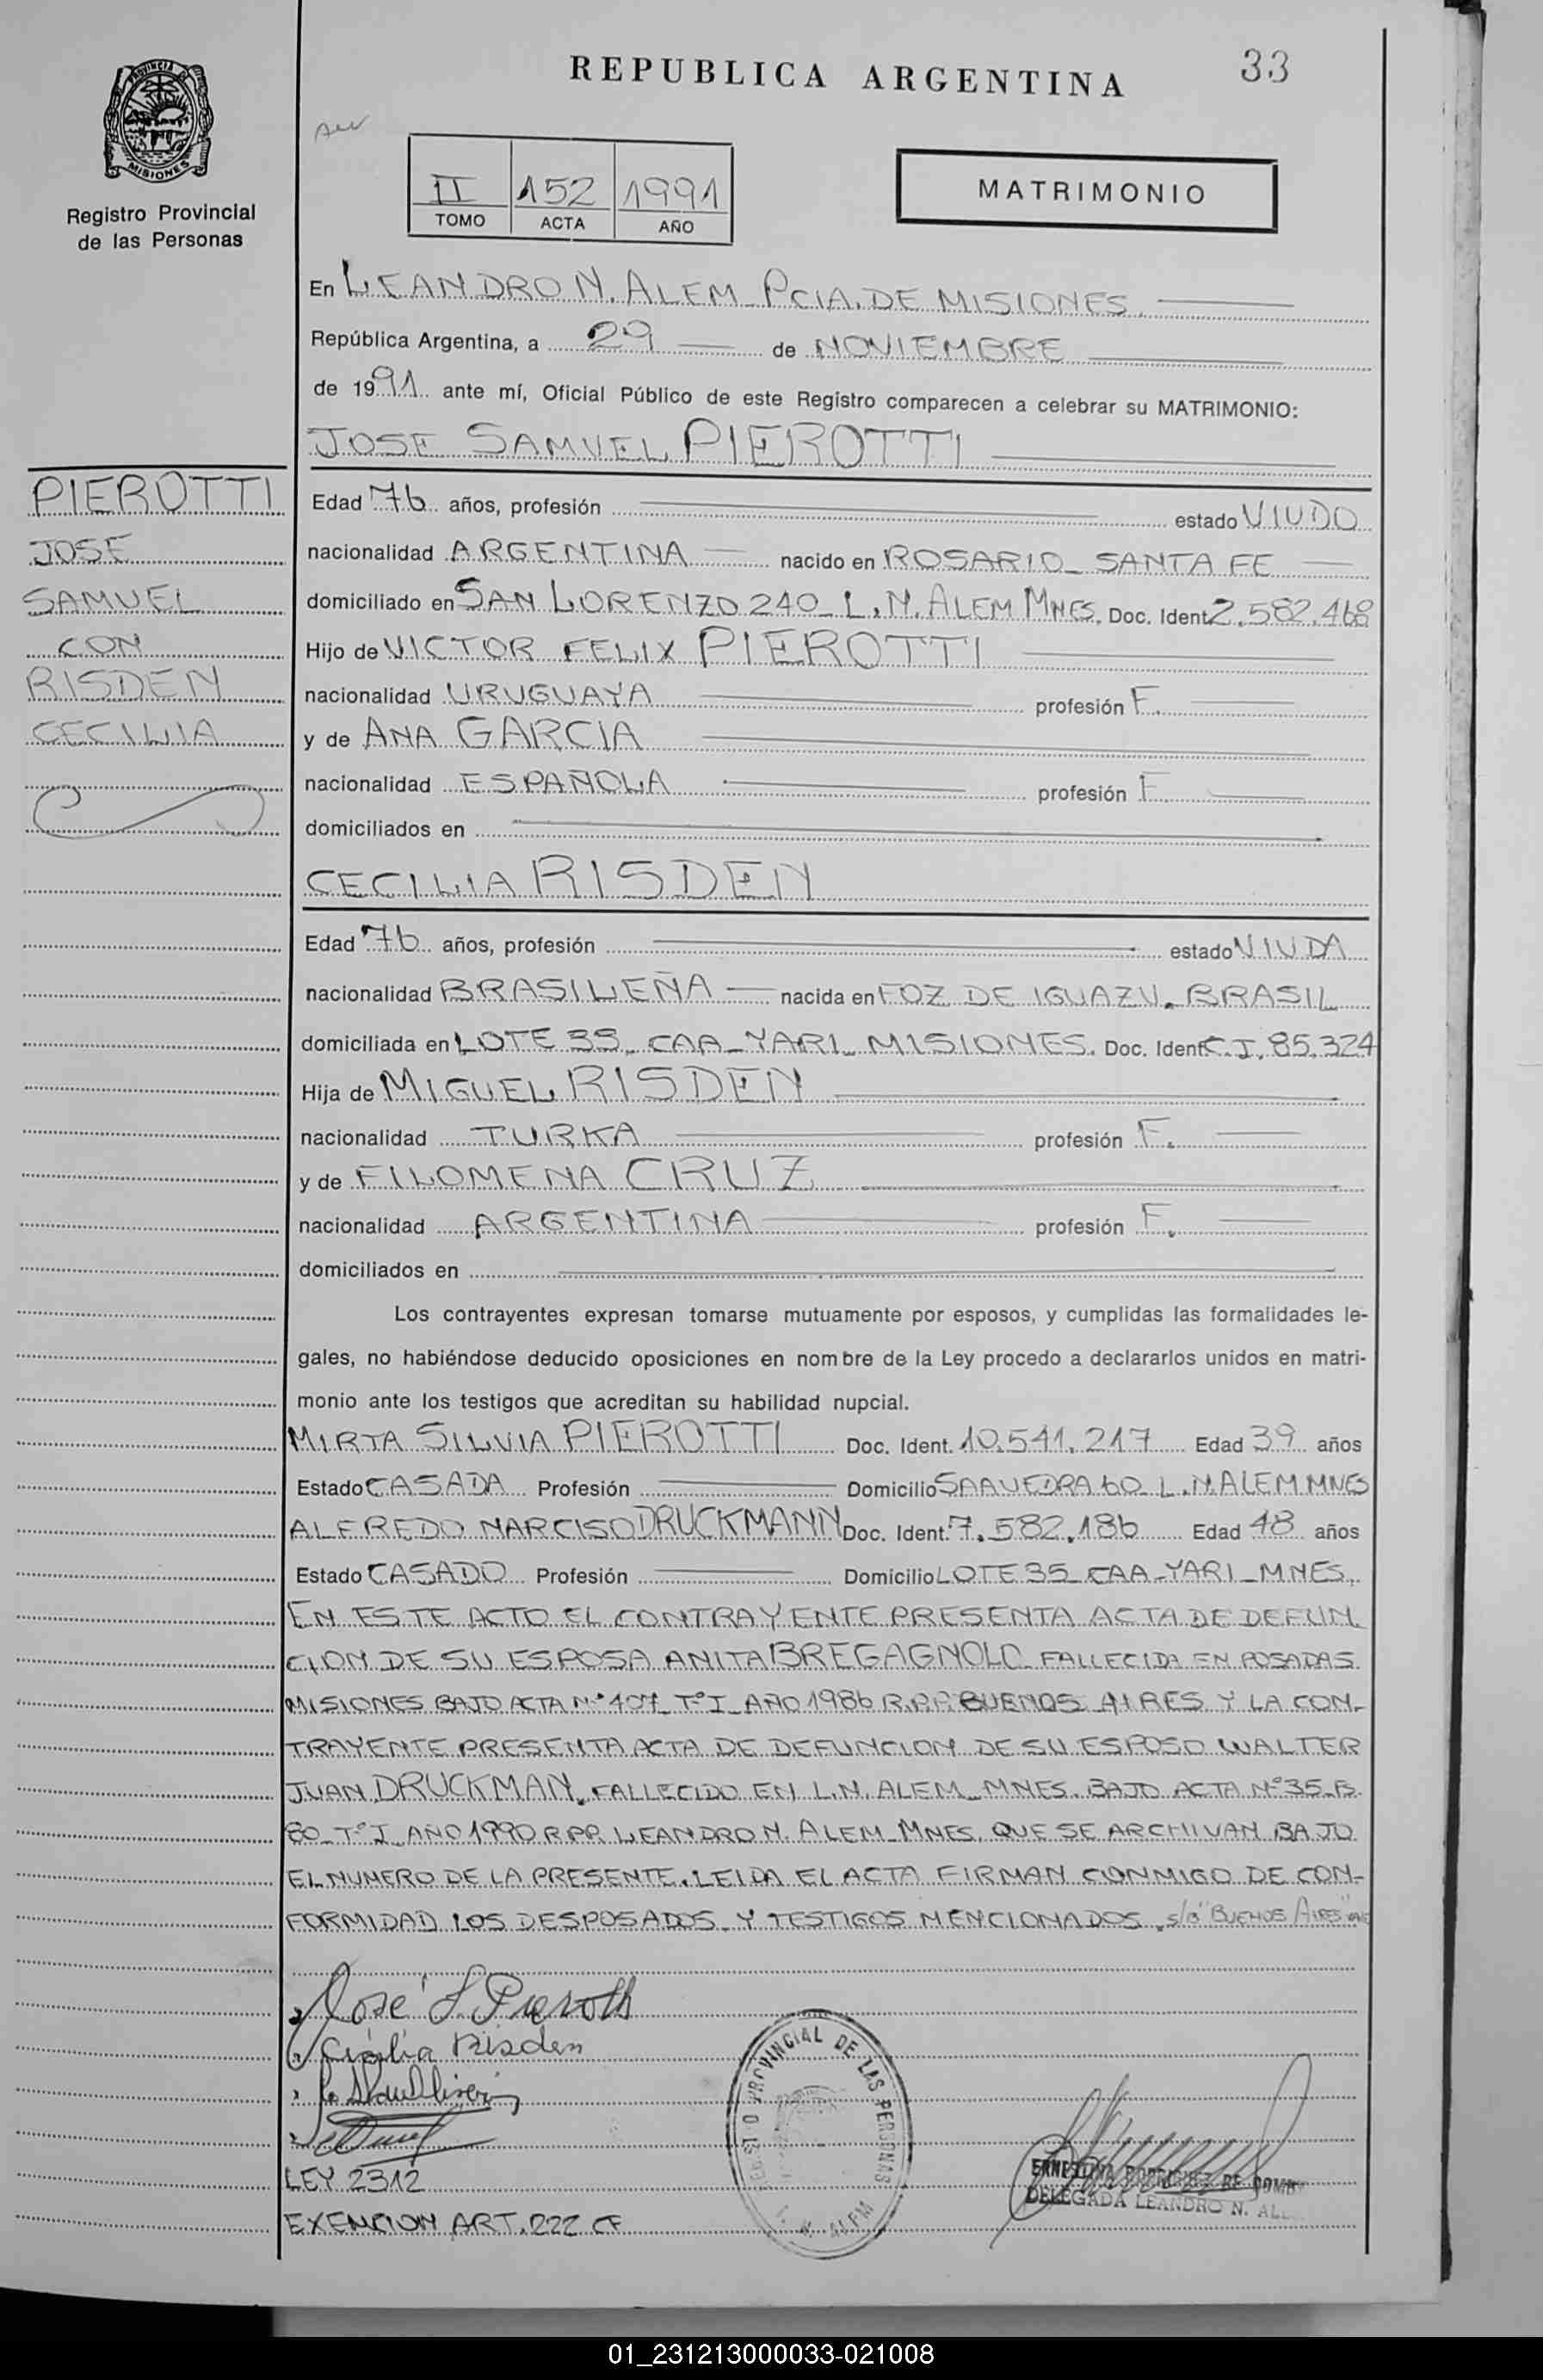 REPUBLICA ARGENTINA
33
PROVINCIA DE
MISIONES
Registro Provincial
de las Personas
II 152 1991
TOMO ACTA AÑO
MATRIMONIO
En LEANDRO N. ALEM PCIA. DE MISIONES.
República Argentina, a 29 de NOVIEMBRE
de 1991 ante mí, Oficial Público de este Registro comparecen a celebrar su MATRIMONIO:
JOSE SAMUEL PIEROTTI
PIEROTTI
JOSE
SAMUEL
CON
RISDEN
CECILIA
Edad 76 años, profesión estado VIUDO
nacionalidad ARGENTINA nacido en ROSARIO_ SANTA FE
domiciliado en SAN LORENZO 240_ L.N. ALEM MNES. Doc. Ident. 2.582.468
Hijo de VICTOR FELIX PIEROTTI
nacionalidad URUGUAYA profesión F.
y de ANA GARCIA
nacionalidad ESPAÑOLA profesión F.
domiciliados en
CECILIA RISDEN
Edad 76 años, profesión estado VIUDA
nacionalidad BRASILEÑA nacida en FOZ DE IGUAZU. BRASIL
domiciliada en LOTE 35_ CAA_YARI_ MISIONES. Doc. Ident. C.I. 85.324
Hija de MIGUEL RISDEN
nacionalidad TURKA profesión F.
y de FILOMENA CRUZ
nacionalidad ARGENTINA profesión F.
domiciliados en
Los contrayentes expresan tomarse mutuamente por esposos, y cumplidas las formalidades le-
gales, no habiéndose deducido oposiciones en nombre de la Ley procedo a declararlos unidos en matri-
monio ante los testigos que acreditan su habilidad nupcial.
MIRTA SILVIA PIEROTTI Doc. Ident. 10.541.217 Edad 39 años
Estado CASADA Profesión Domicilio SAAVEDRA 60_ L.N. ALEM MNES
ALFREDO NARCISO DRUCKMANN Doc. Ident. 7.582.186 Edad 48 años
Estado CASADO Profesión Domicilio LOTE 35_ CAA_YARI_MNES.
EN ESTE ACTO EL CONTRAYENTE PRESENTA ACTA DE DEFUN
CION DE SU ESPOSA ANITA BREGAGNOLO FALLECIDA EN POSADAS
MISIONES BAJO ACTA Nº 407_ TºI_ AÑO 1986 R.P.P. BUENOS AIRES Y LA CON-
TRAYENTE PRESENTA ACTA DE DEFUNCION DE SU ESPOSO WALTER
JUAN DRUCKMAN. FALLECIDO EN L.N. ALEM_ MNES. BAJO ACTA Nº 35_Fº
80_TºI_AÑO 1990 R.P.P. LEANDRO N. ALEM_ MNES. QUE SE ARCHIVAN BAJO
EL NUMERO DE LA PRESENTE. LEIDA EL ACTA FIRMAN CONMIGO DE CON-
FORMIDAD LOS DESPOSADOS Y TESTIGOS MENCIONADOS. S/B "BUENOS AIRES"
José S Pierotti
Cecilia Risden
PROVINCIAL DE LAS PERSONAS
L. N. ALEM
ERNESTINA RODRIGUEZ DE
DELEGADA LEANDRO N.
LEY 2312
EXENCION ART. 222 CF
01_231213000033-021008